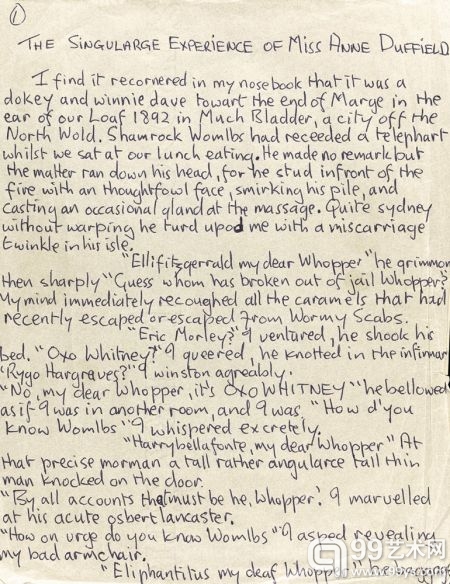 1
THE SINGULARGE EXPERIENCE OF MISS ANNE DUFFIELD
I find it recornered in my nosebook that it was a
dokey and winnie dave towart the end of Marge in the
ear of our Loaf 1892 in Much Bladder, a city off the
North Wold. Shamrock Womlbs had receeded a telephart
whilst we sat at our lunch eating. He made no remark but
the matter ran down his head, for he stud infront of the
fire with an thoughtfowl face, smirking his pile, and
casting an occasional gland at the massage. Quite sydney
without warping he turd upod me with a miscarriage
twinkle in his isle.
"Ellifitzgerrald my dear Whopper" he grimmon
then sharply "Guess whom has broken out of jail Whopper?"
My mind immediately recoughed all the caramels that had
recently escaped or escaped from Wormy Scabs.
"Eric Morley?" I ventured, he shook his
bed. "Oxo Whitney?" I queered, he knotted in the infirmar
"Rygo Hargraves?" I winston agreably.
"No, my dear Whopper, it's OXO WHITNEY" he bellowed
as if I was in another room, and I was. "How d'you
know Womlbs" I whispered excretely.
"Harrybellafonte, my dear Whopper" At
that precise morman a tall rather angularce tall thin
man knocked on the door.
"By all accounts that must be he, Whopper." I marvelled
at his acute osbert lancaster.
"How on urge do you know Womlbs" I asped revealing
my bad armchair.
"Eliphantitus my deaf Whopper" he
99艺术网